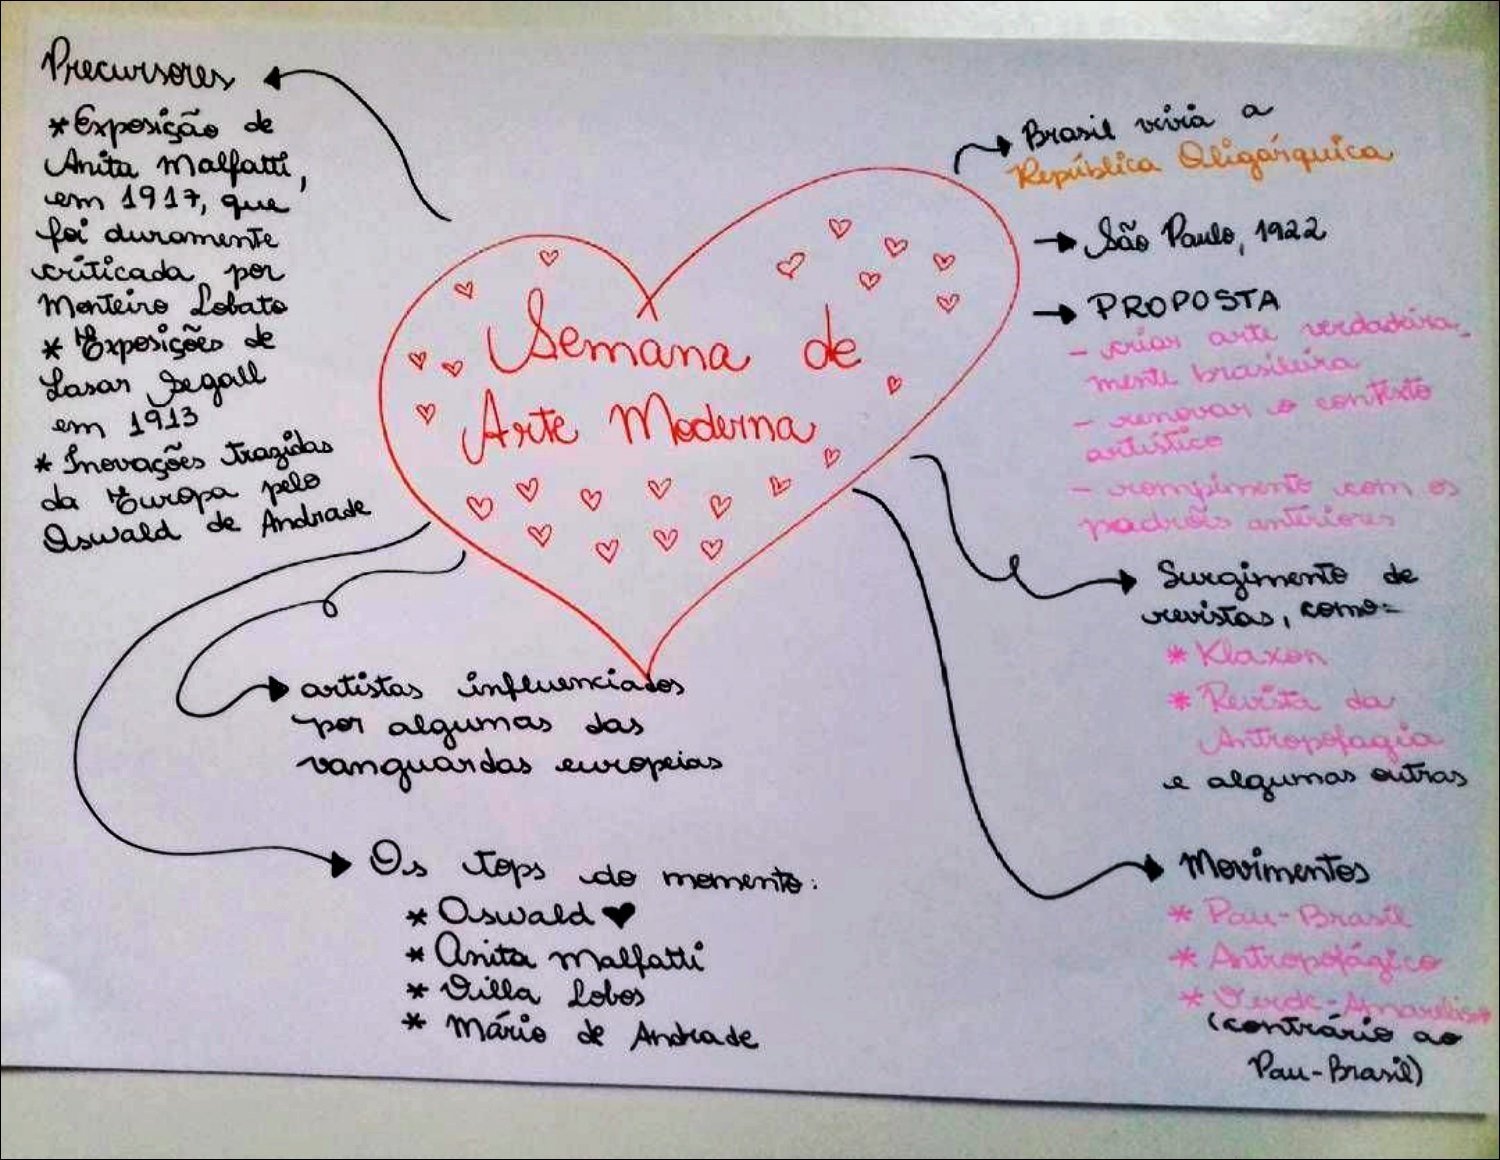 Precursores
* Exposição de
Anita Malfatti,
em 1917, que
foi duramente
criticada por
Monteiro Lobato
* Exposições de
Lasar Segall
em 1913
* Inovações trazidas
da Europa pelo
Oswald de Andrade
Semana de
Arte Moderna
Brasil vivia a
República Oligárquica
São Paulo, 1922
PROPOSTA
- criar arte verdadeira-
mente brasileira
- renovar o contexto
artístico
- rompimento com os
padrões anteriores
Surgimento de
revistas, como:
* Klaxon
* Revista da
Antropofagia
e algumas outras
Movimentos
* Pau-Brasil
* Antropofágico
* Verde-Amarelismo
(contrário ao
Pau-Brasil)
artistas influenciados
por algumas das
vanguardas europeias
Os tops do momento:
* Oswald ♥
* Anita Malfatti
* Villa Lobos
* Mário de Andrade